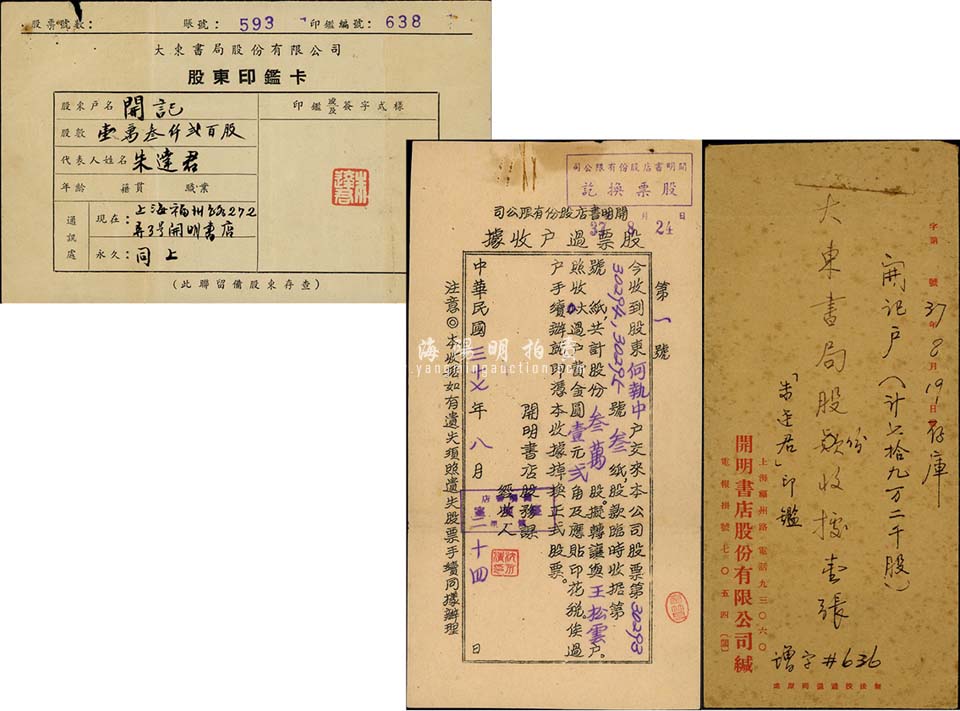 股票號數：
賬號：593
印鑑編號：638
大東書局股份有限公司
股東印鑑卡
股東戶名 開記
股數 壹萬叁仟弍百股
代表人姓名 朱達君
年齡 籍貫 職業
通訊處
現在：上海福州路272弄3号開明書店
永久：同上
印鑑或及簽字式樣
（此聯留備股東存查）
開明書店股份有限公司
股票換訖
年月日
37 8 24
開明書店股份有限公司
股票過户收據
第一號
今收到股東何執中户交來本公司股票第30293
30294,30296號叁紙,股款臨時收据第
號 紙,共計股份叁萬股。擬轉讓與王松雲户。
照收過户費金圓壹元弍角及應貼印花稅。俟過
户手續辦訖即憑本收據掉換正式股票。
開明書店股務課
經收人
中華民國三十七年八月二十四日
注意◎本收据如有遺失須照遺失股票手續同樣辦理
字第 號
37年8月19日存庫
開記户（計六拾九万二千股）
大東書局股份款收據壹張
「朱達君」印鑑
上海福州路 電話九三〇六〇
開明書店股份有限公司緘
電報掛號七〇五四（滬）
增字#636
海陽明拍賣
yangmingauction.com